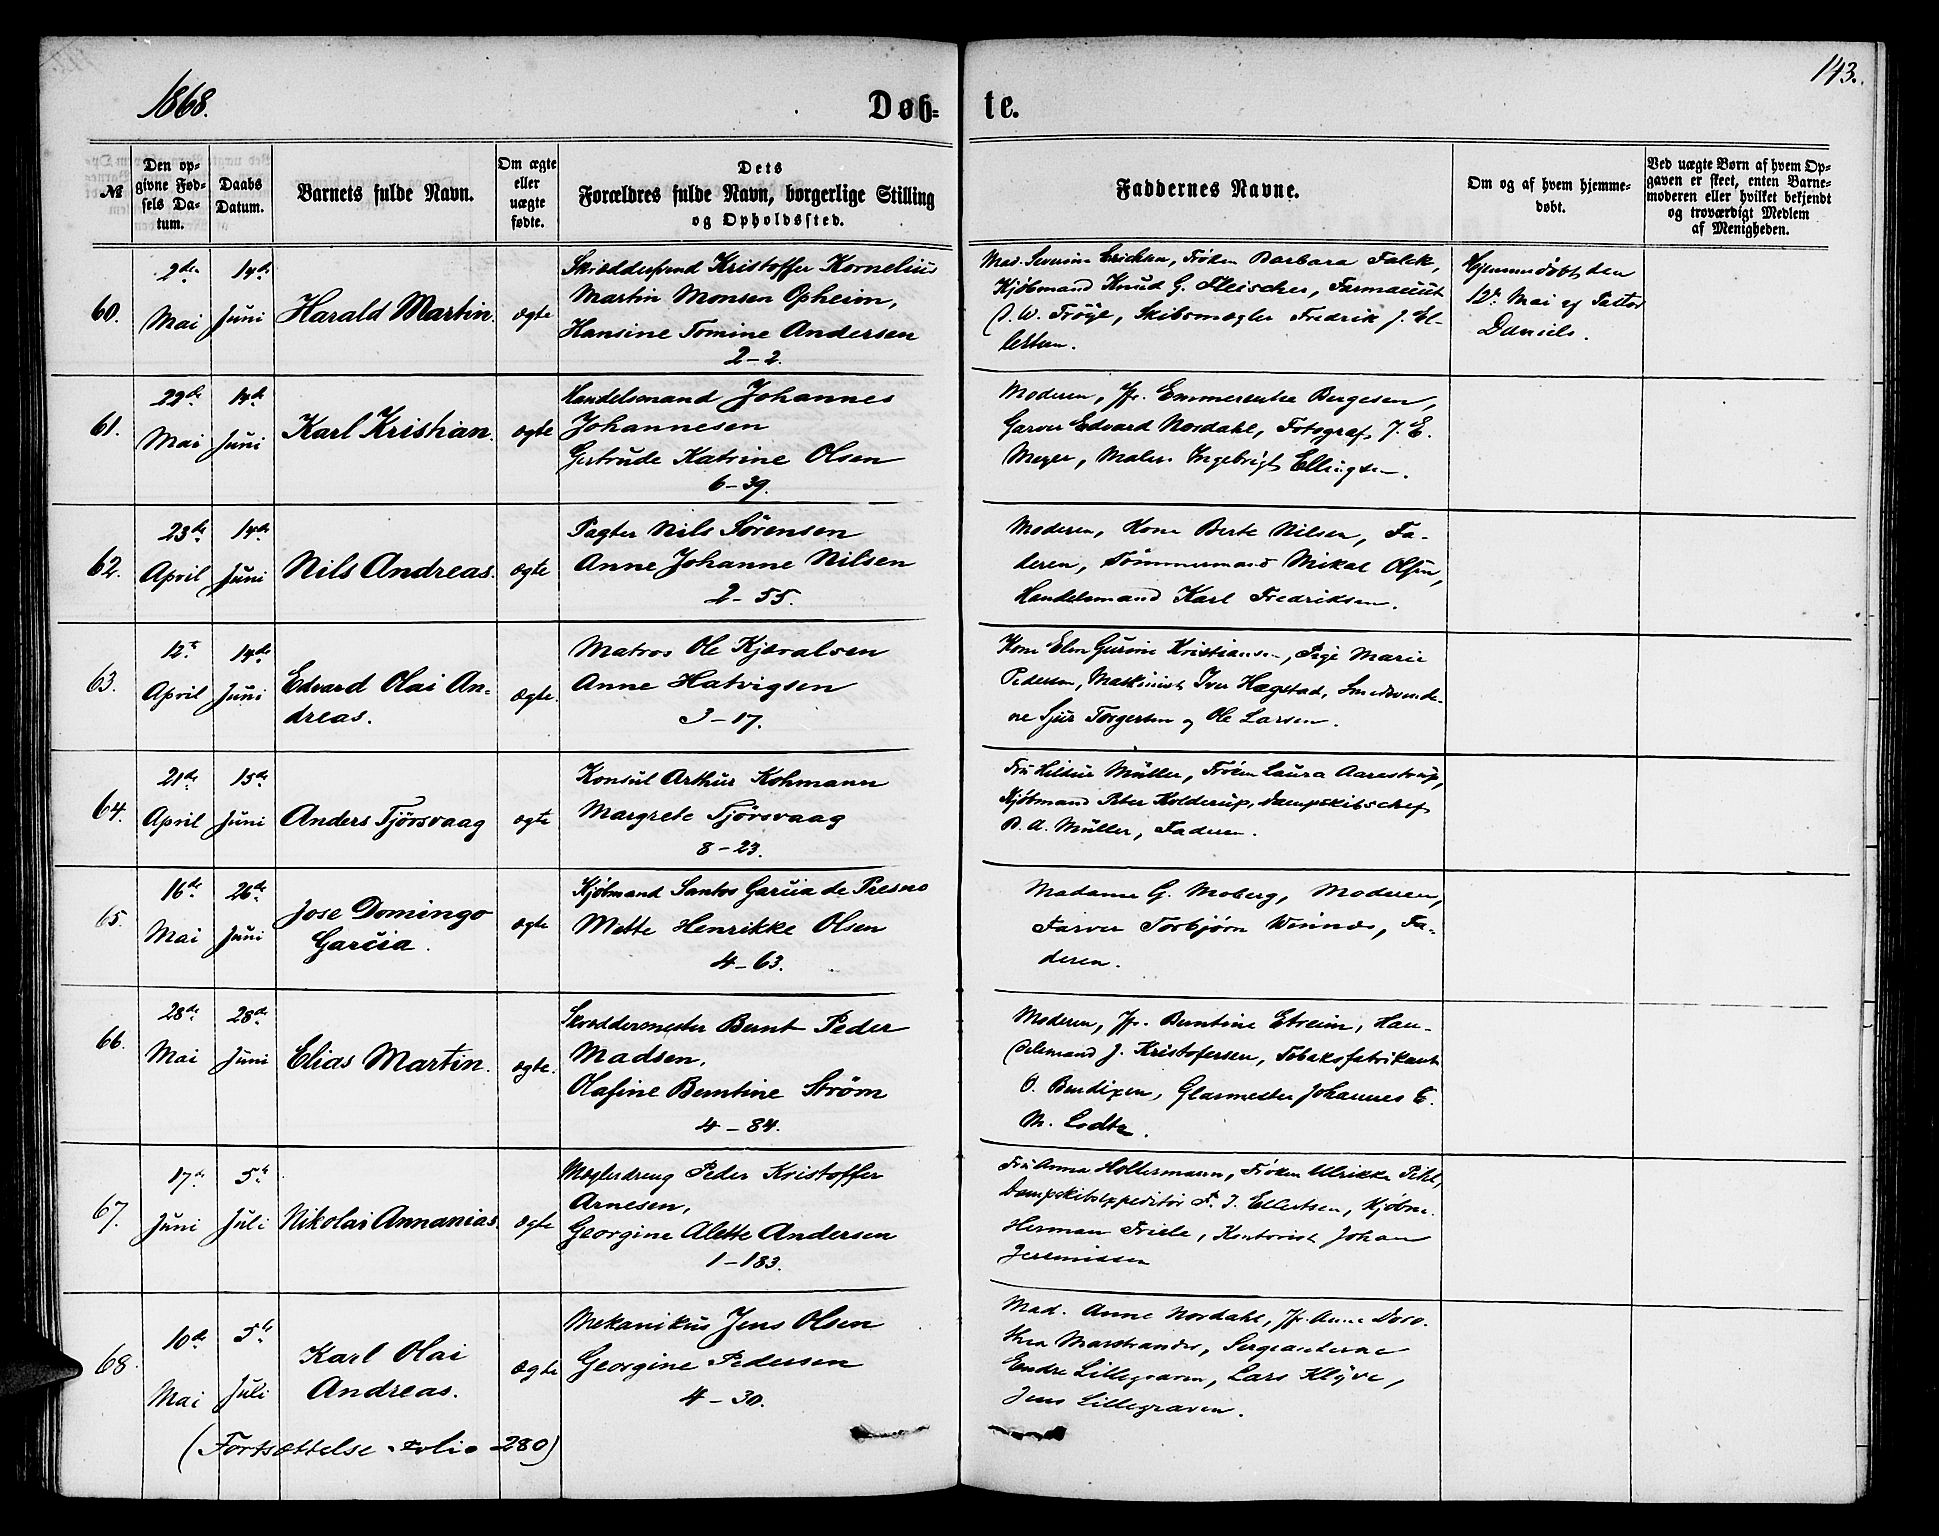 1868.
Døb-
te.
143.
№
Den op-
givne Fød-
sels Da-
tum.
Daabs
Datum.
Barnets fulde Navn.
Om ægte
eller
uægte
fødte.
Dets
Forældres fulde Navn, borgerlige Stilling
og Opholdssted.
Faddernes Navne.
Om og af hvem hjemme-
døbt.
Ved uægte Børn af hvem Op-
gaven er skeet, enten Barne-
moderen eller hvilket bekjendt
og troværdigt Medlem
af Menigheden.
60.
2de
Mai
14de
Juni
Harald Martin.
ægte
Skrædersvend Kristoffer Kornelius
Martin Monsen Opheim,
Hansine Tomine Andersen
2-2.
Mad. Severine Erichsen, Frøken Barbara Falck,
Kjøbmand Knud G. Fleischer, Farmaceut
W. Frøyl, Skibsmægler Fredrik J. El-
lertsen.
Hjemmedøbt den
12te Mai af Pastor
Daniels.
61.
22de
Mai
14de
Juni
Karl Kristian.
ægte
Handelsmand Johannes
Johannesen
Gertrude Katrine Olsen
6-39.
Moderen, Jfr. Emmerentse Bergesen,
Garver Edvard Nordahl, Fotograf J. E.
Meyer, Maler Ingebrigt Ellingsen.
62.
23de
April
14de
Juni
Nils Andreas.
ægte
Pagter Nils Sørensen
Anne Johanne Nilsen
2-55.
Moderen, Kone Berte Nilsen, Fa-
deren, Tømmermand Mikal Olsen,
Handelsmand Karl Fredriksen.
63.
12te
April
14de
Juni
Edvard Olai An-
dreas.
ægte.
Matros Ole Kjævalsen
Anne Hatvigsen
3-17.
Kone Elen Gurine Kristiansen, Pige Marie
Pedersen, Maskinist Iver Hægstad, Smedsvende-
ne Sjur Torgersen og Ole Larsen.
64.
21de
April
15de
Juni
Anders Tjørsvaag
ægte
Konsul Arthur Kohmann
Margrete Tjørsvaag
8-23.
Fru Müller, Frøken Laura Aarestrup,
Kjøbmand Peter Kolderup, Dampskibschef
B. A. Müller, Faderen.
65.
16de
Mai
26de
Juni
Jose Domingo
Garcia.
ægte
Kjøbmand Santos Garcia de Presno
Mette Henrikke Olsen
4-63.
Madame G. Moberg, Moderen,
Farver Torbjørn Winnæs, Fa-
deren.
66.
28de
Mai
28de
Juni
Elias Martin.
ægte.
Skræddermester Bernt Peder
Madsen,
Olafine Berntine Strøm
4-84.
Moderen, Jfr. Berntine Etreim, Han-
delsmand J. Kristofersen, Tobaksfabrikant
O. Bendixen, Glarmester Johannes C.
M. Lodtz.
67.
17de
Juni
5te
Juli
Nikolai Annanias.
ægte
Møglerdreng Peder Kristoffer
Arnesen,
Georgine Alette Andersen
1-183.
Fru Anna Holtermann, Frøken Ulrikke Pihl,
Dampskibsexpeditør F. J. Ellertsen, Kjøbm.
Herman Friele, Kontorist Johan
Jeremiassen
68.
10de
Mai
5te
Juli
Karl Olai
Andreas.
ægte
Mekanikus Jens Olsen
Georgine Pedersen
4-30.
Mad. Anne Nordahl, Jfr. Anne Doro-
thea Marstrander, Sergeanterne
Endre Lillegraven, Lars Klyve,
Jens Lillegraven.
(Fortsættelse Folio 280)